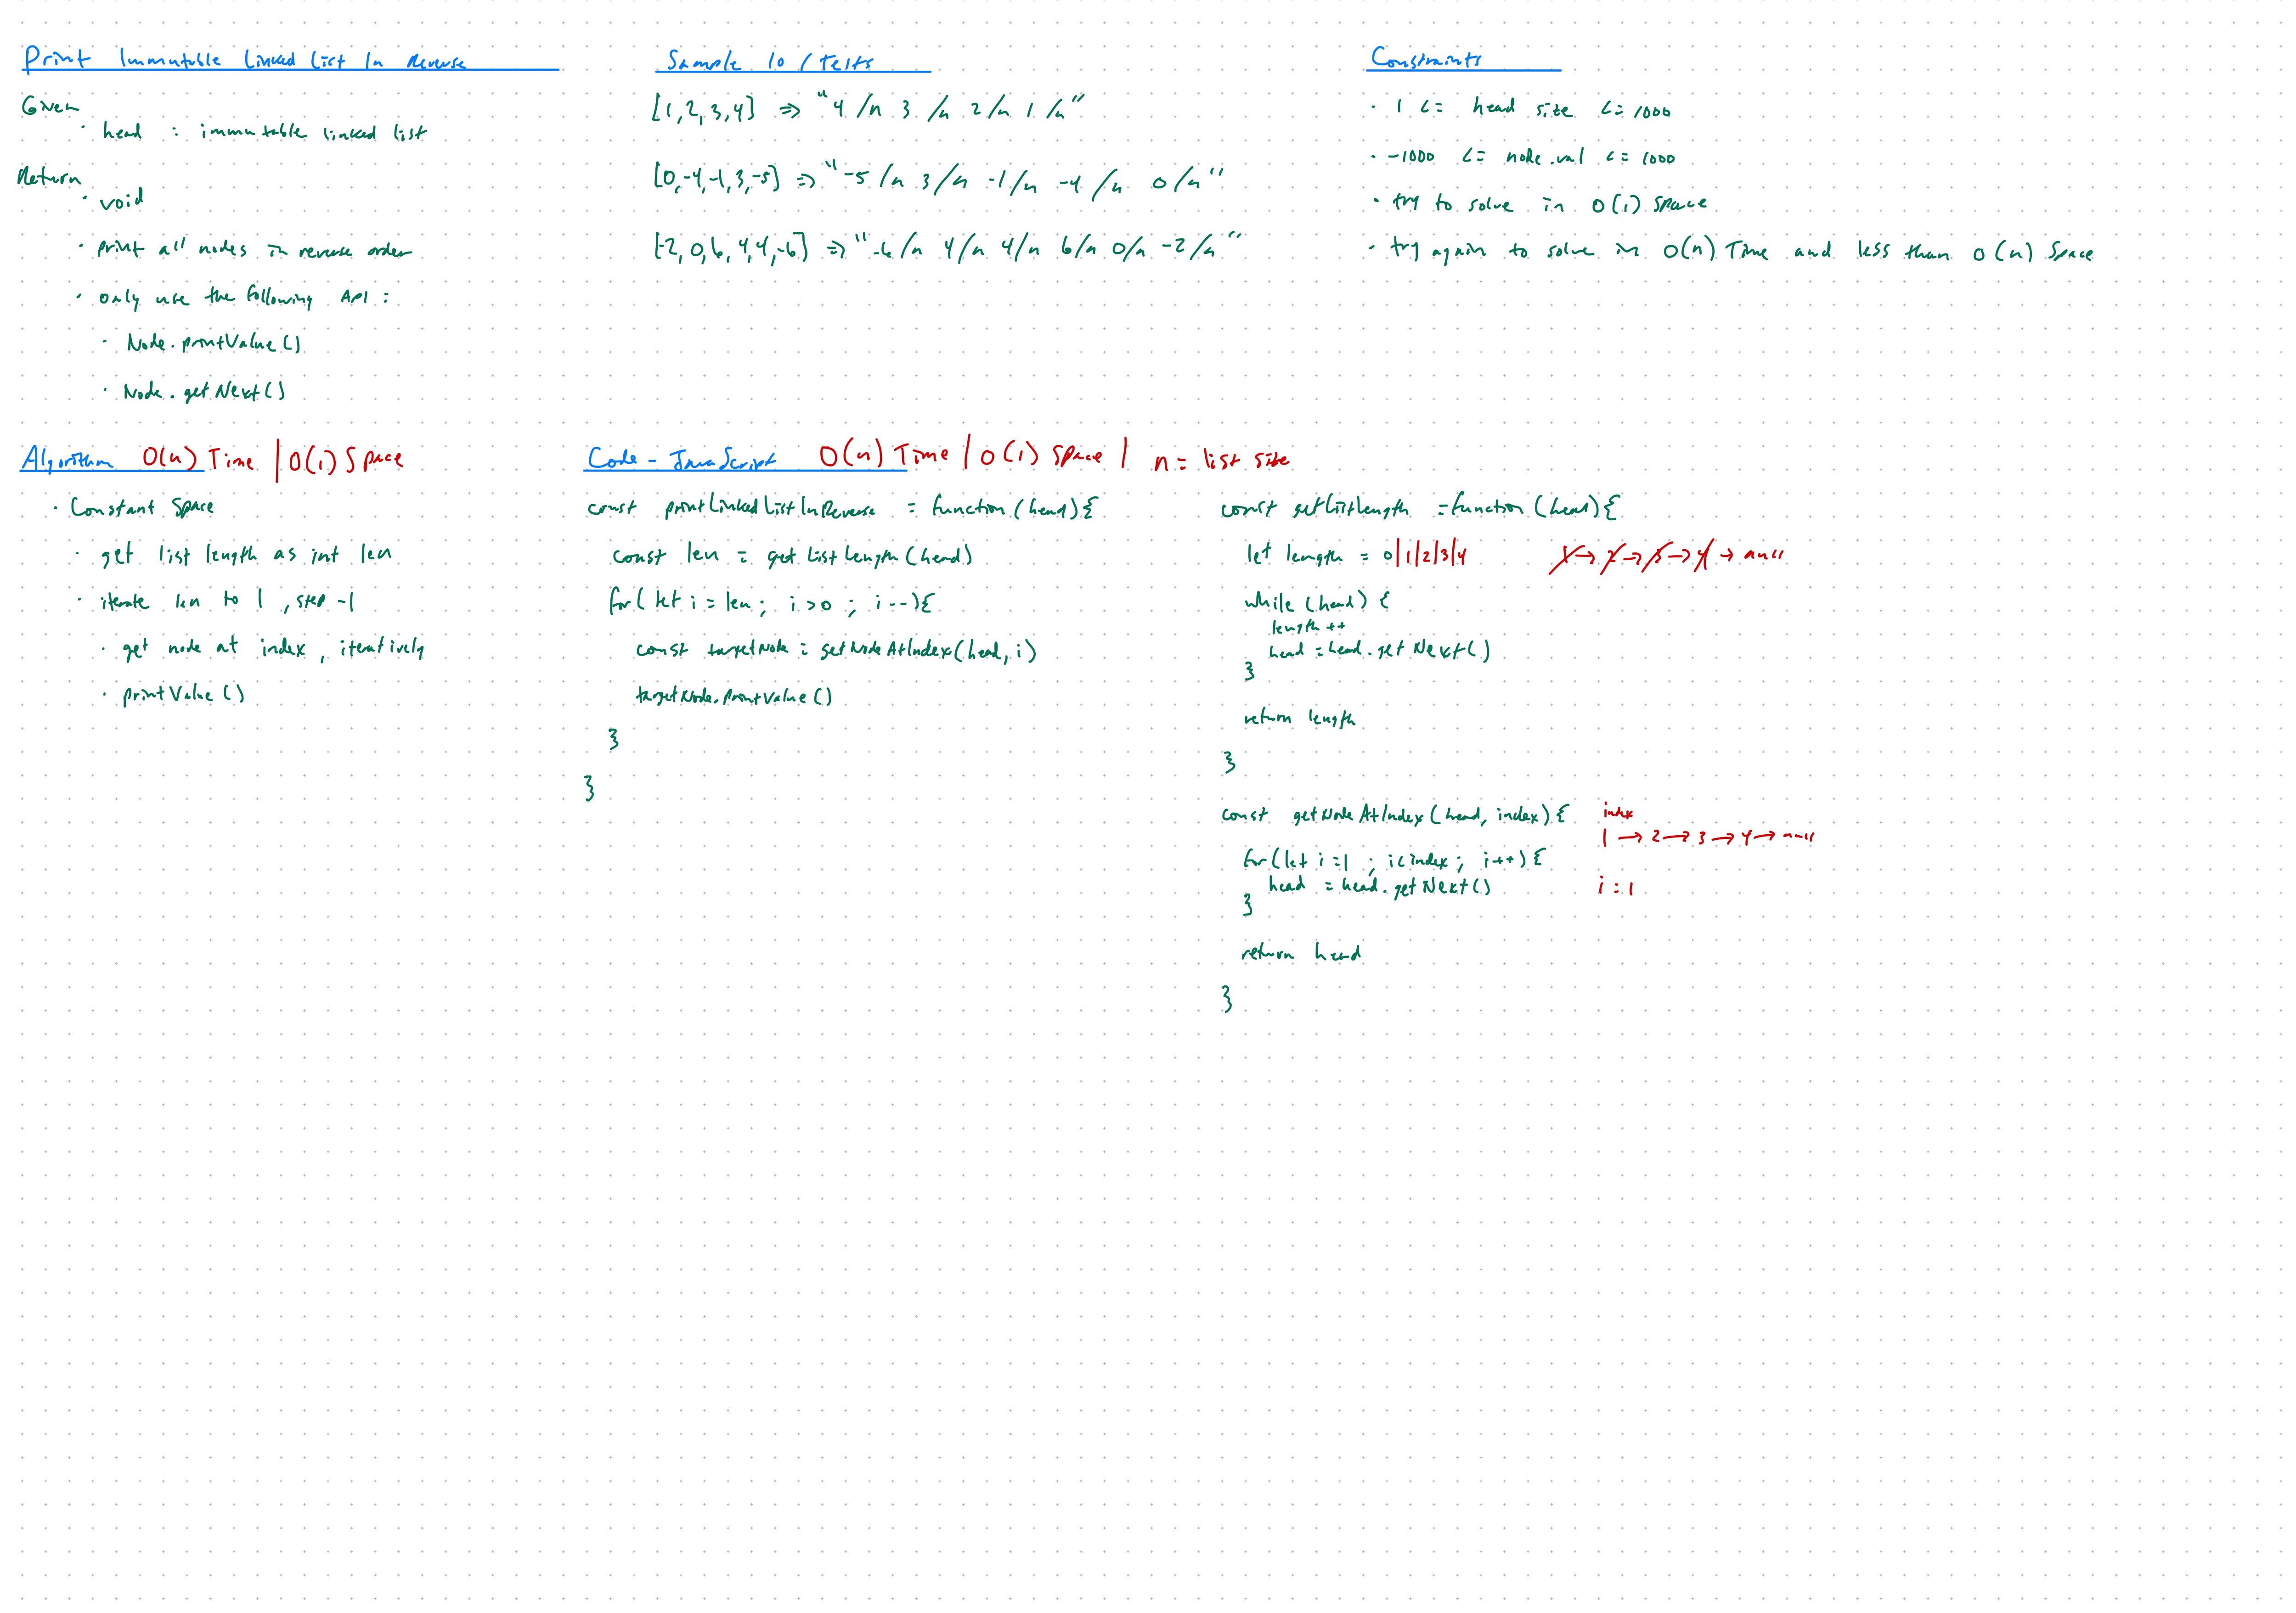 Print Immutable Linked List In Reverse
Given
· head : immutable linked list
Return
· void
· print all nodes in reverse order
· only use the following API :
· Node.printValue()
· Node.getNext()
Sample IO / Tests
[1,2,3,4] => "4 /n 3 /n 2 /n 1 /n"
[0,-4,-1,3,-5] => "-5 /n 3 /n -1 /n -4 /n 0 /n"
[-2,0,6,4,4,-6] => "-6 /n 4 /n 4 /n 6 /n 0 /n -2 /n"
Constraints
· 1 <= head size <= 1000
· -1000 <= node.val <= 1000
· try to solve in O(1) space
· try again to solve in O(n) Time and less than O(n) Space
Algorithm O(n) Time | O(1) Space
· Constant Space
· get list length as int len
· iterate len to 1, step -1
· get node at index, iteratively
· printValue()
Code - JavaScript O(n) Time | O(1) Space | n = list size
const printLinkedListInReverse = function(head){
const len = getListLength(head)
for(let i = len; i > 0; i--){
const targetNode = getNodeAtIndex(head, i)
targetNode.printValue()
}
}
const getListLength = function(head){
let length = 0|1|2|3|4 1→2→3→4→null
while(head){
length++
head = head.getNext()
}
return length
}
const getNodeAtIndex(head, index){ index
1→2→3→4→null
for(let i=1; i<index; i++){
head = head.getNext() i = 1
}
return head
}